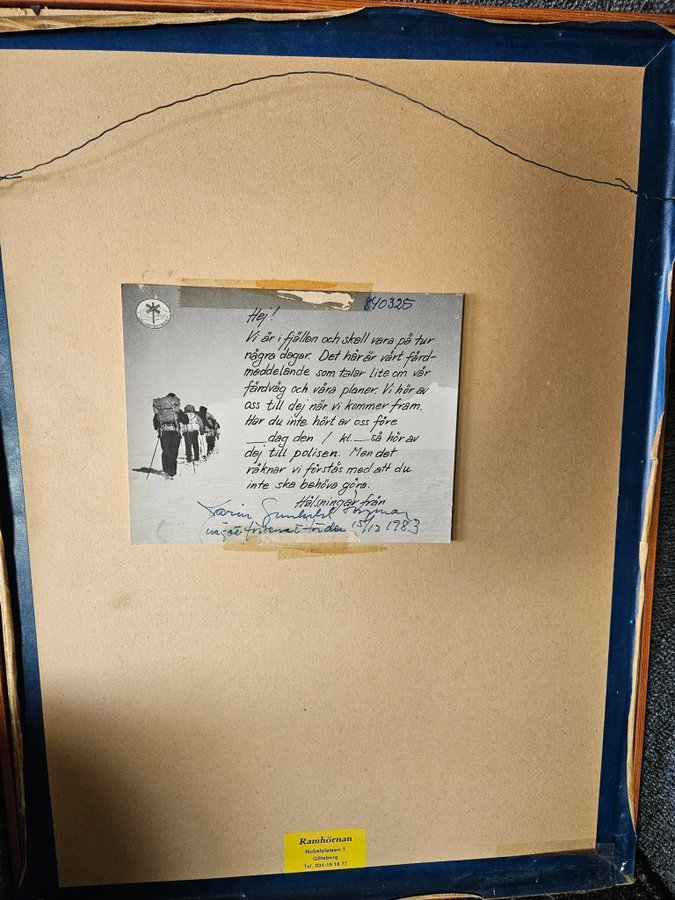 840325
Hej!
Vi är i fjällen och skall vara på tur
några dagar. Det här är vårt färd-
meddelande som talar lite om vår
färdväg och våra planer. Vi hör av
oss till dej när vi kommer fram.
Har du inte hört av oss före
__dag den / kl.__så hör av
dej till polisen. Men det
räknar vi förstås med att du
inte ska behöva göra.
Hälsningar från
Karin Gunhild
15/12 1983
Ramhörnan
Nobelplatsen 1
Göteborg
Tel. 031-15 16 77